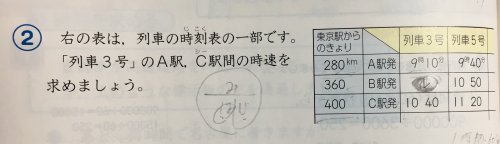 ② 右の表は,列車の時刻表の一部です。
「列車3号」のA駅,C駅間の時速を
求めましょう。
東京駅からのきょり 列車3号 列車5号
280km A駅発 9時10分 9時40分
360 B駅発 10 50
400 C駅発 10 40 11 20